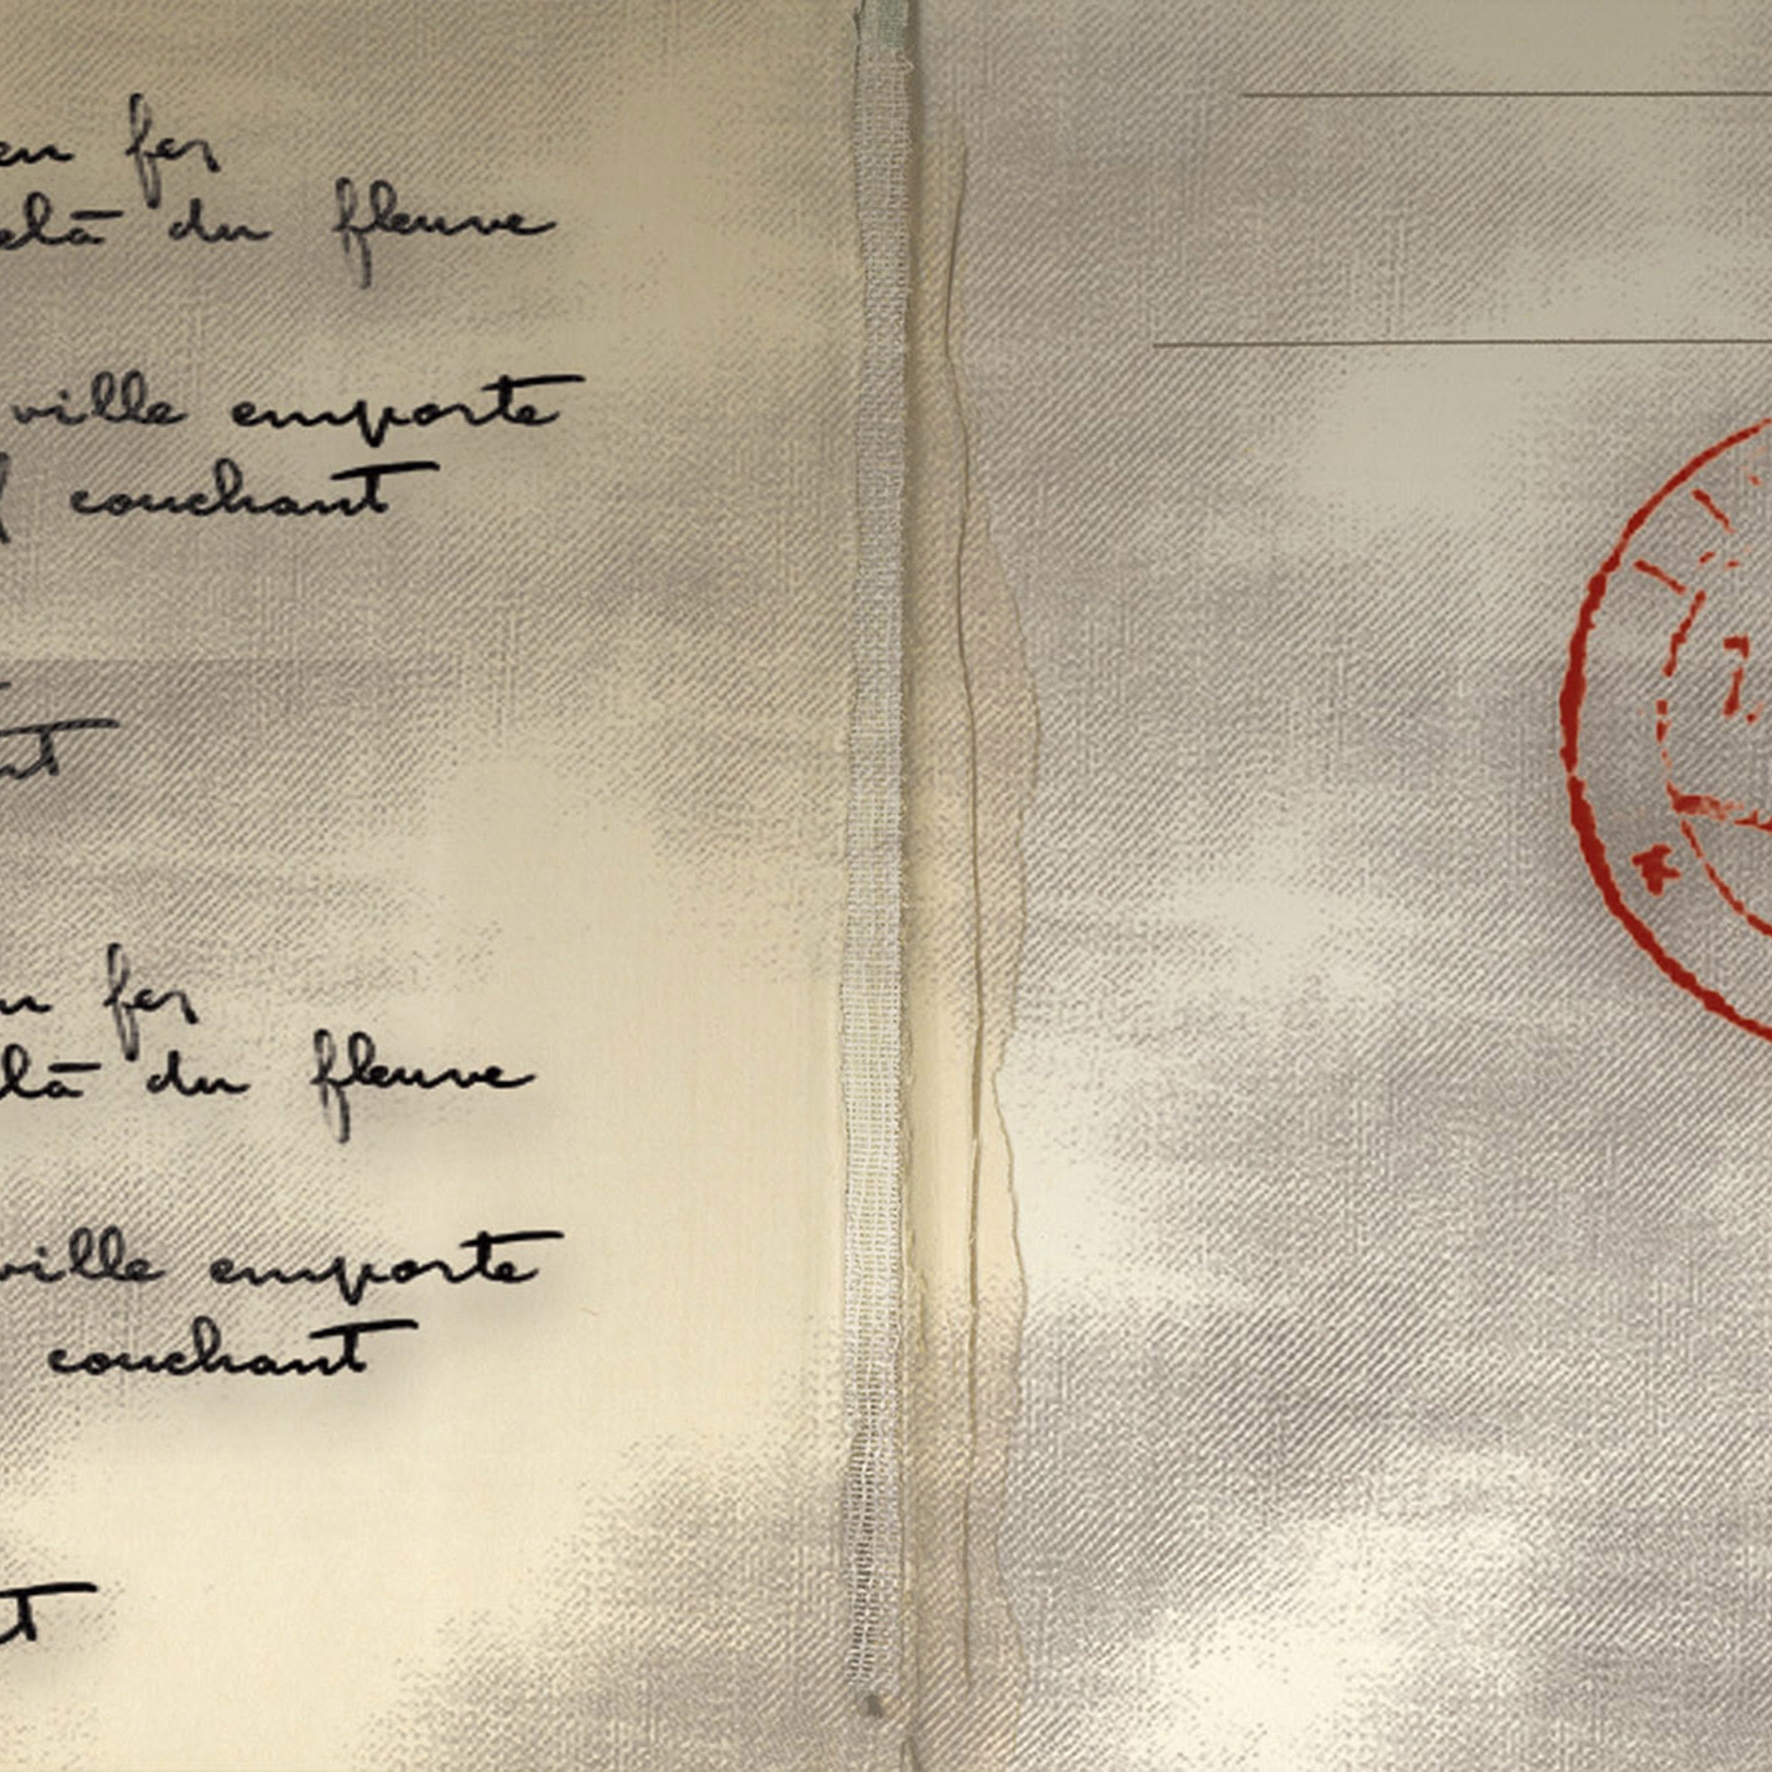 en fer
du fleuve
ville emporte
couchant
fer
du fleuve
ville emporte
couchant